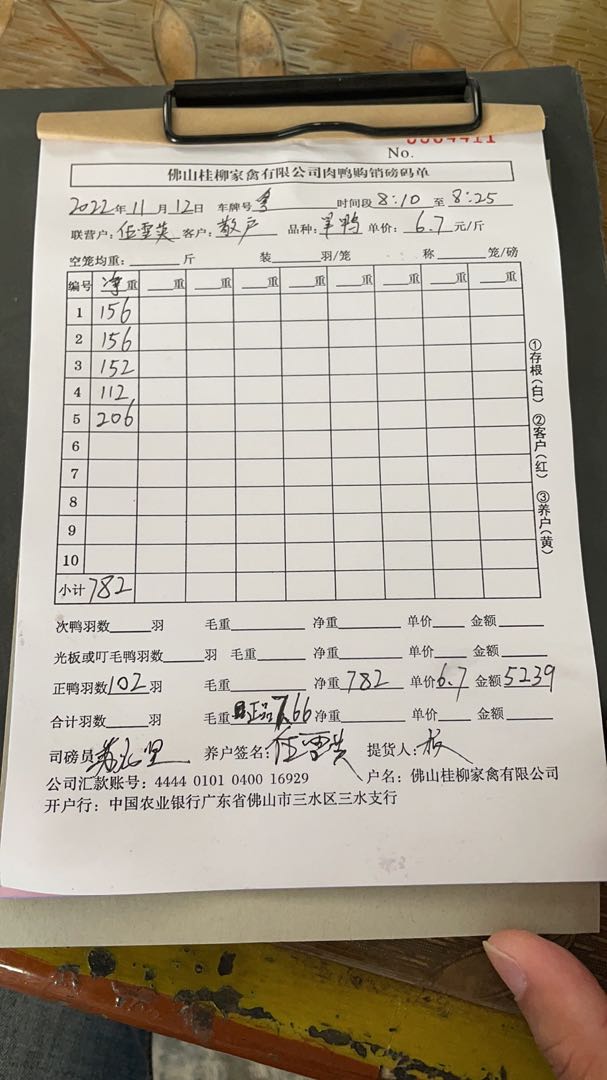 No.
佛山桂柳家禽有限公司肉鸭购销磅码单
2022年11月12日 车牌号 时间段8:10至8:25
联营户:任雪英 客户:散户 品种:羊鸭 单价:6.7元/斤
空笼均重:斤 装羽/笼 称笼/磅
编号 净重 重 重 重 重 重 重 重 重
1 156
2 156
3 152
4 112
5 206
6
7
8
9
10
小计 782
①存根(白) ②客户(红) ③养户(黄)
次鸭羽数羽 毛重 净重 单价 金额
光板或叮毛鸭羽数羽 毛重 净重 单价 金额
正鸭羽数102羽 毛重 净重782 单价6.7 金额5239
合计羽数羽 毛重 正品7.66 净重 单价 金额
司磅员: 养户签名:任雪英 提货人:
公司汇款账号:4444 0101 0400 16929 户名:佛山桂柳家禽有限公司
开户行:中国农业银行广东省佛山市三水区三水支行